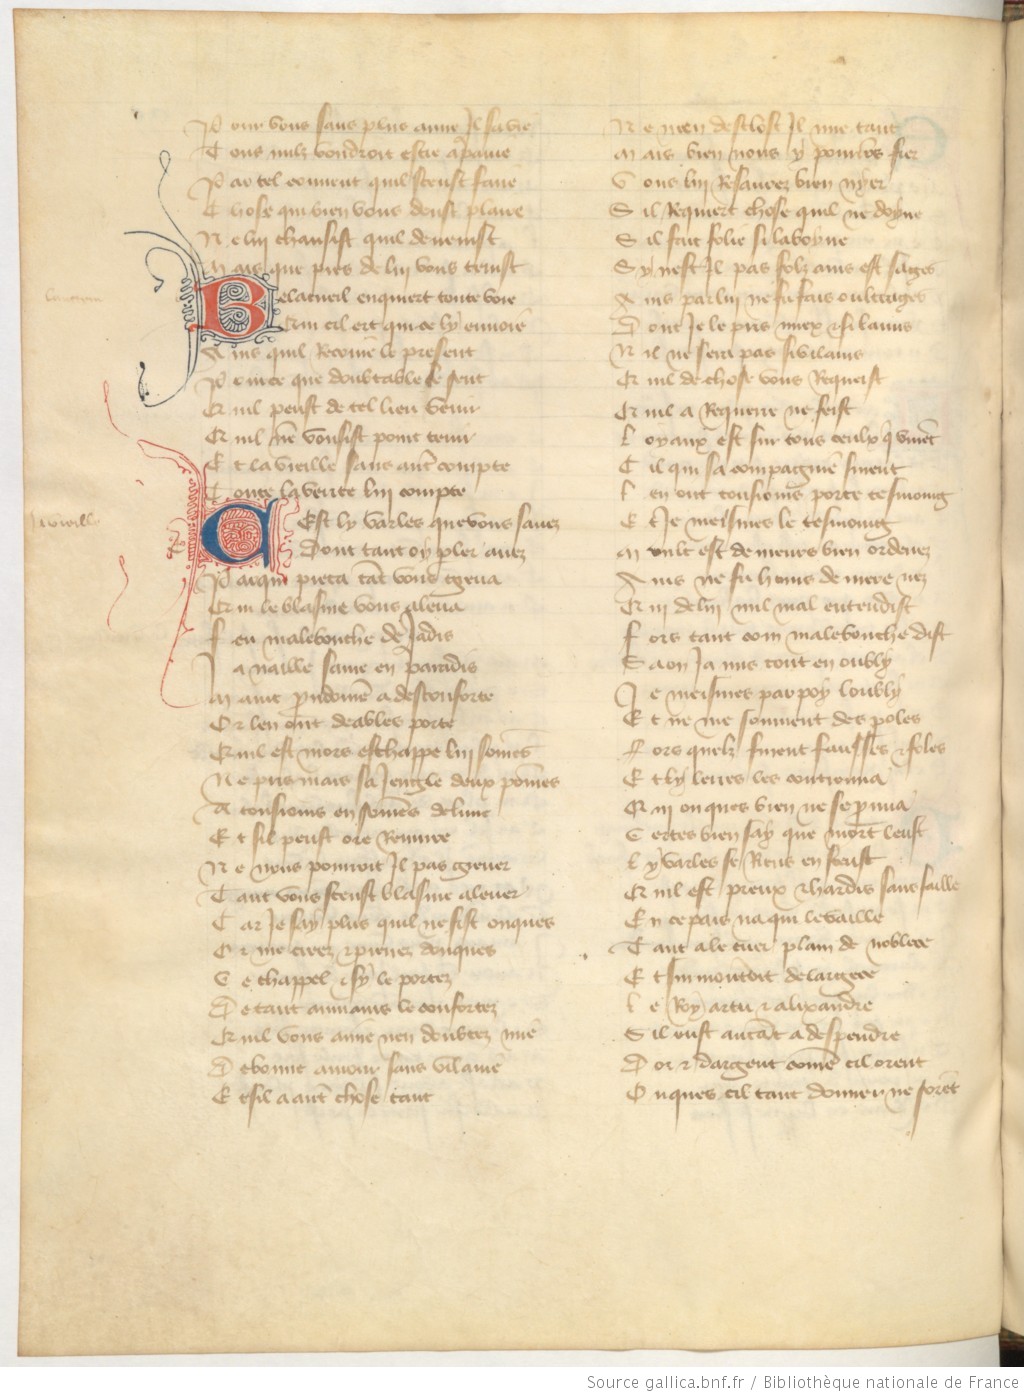 Pour vous sans plus amer Il sa vie
Tous nulz voudroit estre apaiue
Par tel conuent quil sceust faire
Chose qui bien vous deust plaire
Ne lui chausist quil deuenist
Mais que pres de lui vous tenist
Belacueil enquiert toute voie
Qui cil ert qui ce ly enuoie
Ains quil Recoiue le present
Pour ce que doubtable le sent
Quil peust de tel lieu venir
Quil ne vousist point tenir
Et la vieille sans autre compte
Toute la verite lui compte
Cest ly varles que vous sauez
Dont tant oy parler auez
Par qui pieca tant vous greua
Qui le blasme vous aleua
Feu malebouche de Jadis
Ja naille same en paradis
Maint preudome a desconforte
Or len ont deables porte
Quil est mors eschappe lui somes
Ne pris mais sa Jengle deux pomes
A tousiours en somes deliure
Et sil peust ore Reuiure
Ne nous pourroit Il pas greuer
Tant vous sceust blasme aleuer
Car Je say plus quil ne fist onques
Or me creez et prenez donques
Ce chappel et sy le portez
De tant au mains le confortez
Quil vous aime nen doubtez mie
De bonne amour sans vilanie
Et sil a autre chose tant
Ne men desclost Il mie tant
Mais bien nous y pourrons fier
Vous lui Resaurez bien nyer
Sil Requiert chose quil ne doyue
Sil fait folie si la boyue
Sy nest Il pas folz ains est sages
Ains par lui ne fu fais oultrages
Dont Je le pris miex et si laims
Nil ne sera pas si vilains
Quil de chose vous Requeist
Qui a Requerre ne feist
Loyaux est sur tous ceulx qui viuent
Cil qui sa compagnie siuent
Len ont tousiours porte tesmoing
Et Je meismes le tesmoing
Moult est de meurs bien ordenez
Ains ne fu homs de mere nez
Qui de lui nul mal entendist
Fors tant com malebouche dist
Sa on Ja mis tout en oubly
Je meismes par poy loubly
Et ne me souuient des poles
Fors quelz furent fausses et foles
Et ly lerres les controuua
Qui onques bien ne se prouua
Certes bien say que mort leust
Ly varles se Riens en sceust
Quil est preux et hardis sans faille
En ce pais na qui le vaille
Tant a le cuer plain de noblece
Et surmontoit de largece
Le Roy artu et alixandre
Sil eust autant a despendre
Dor et dargent come cil orent
Onques cil tant donner ne sorent